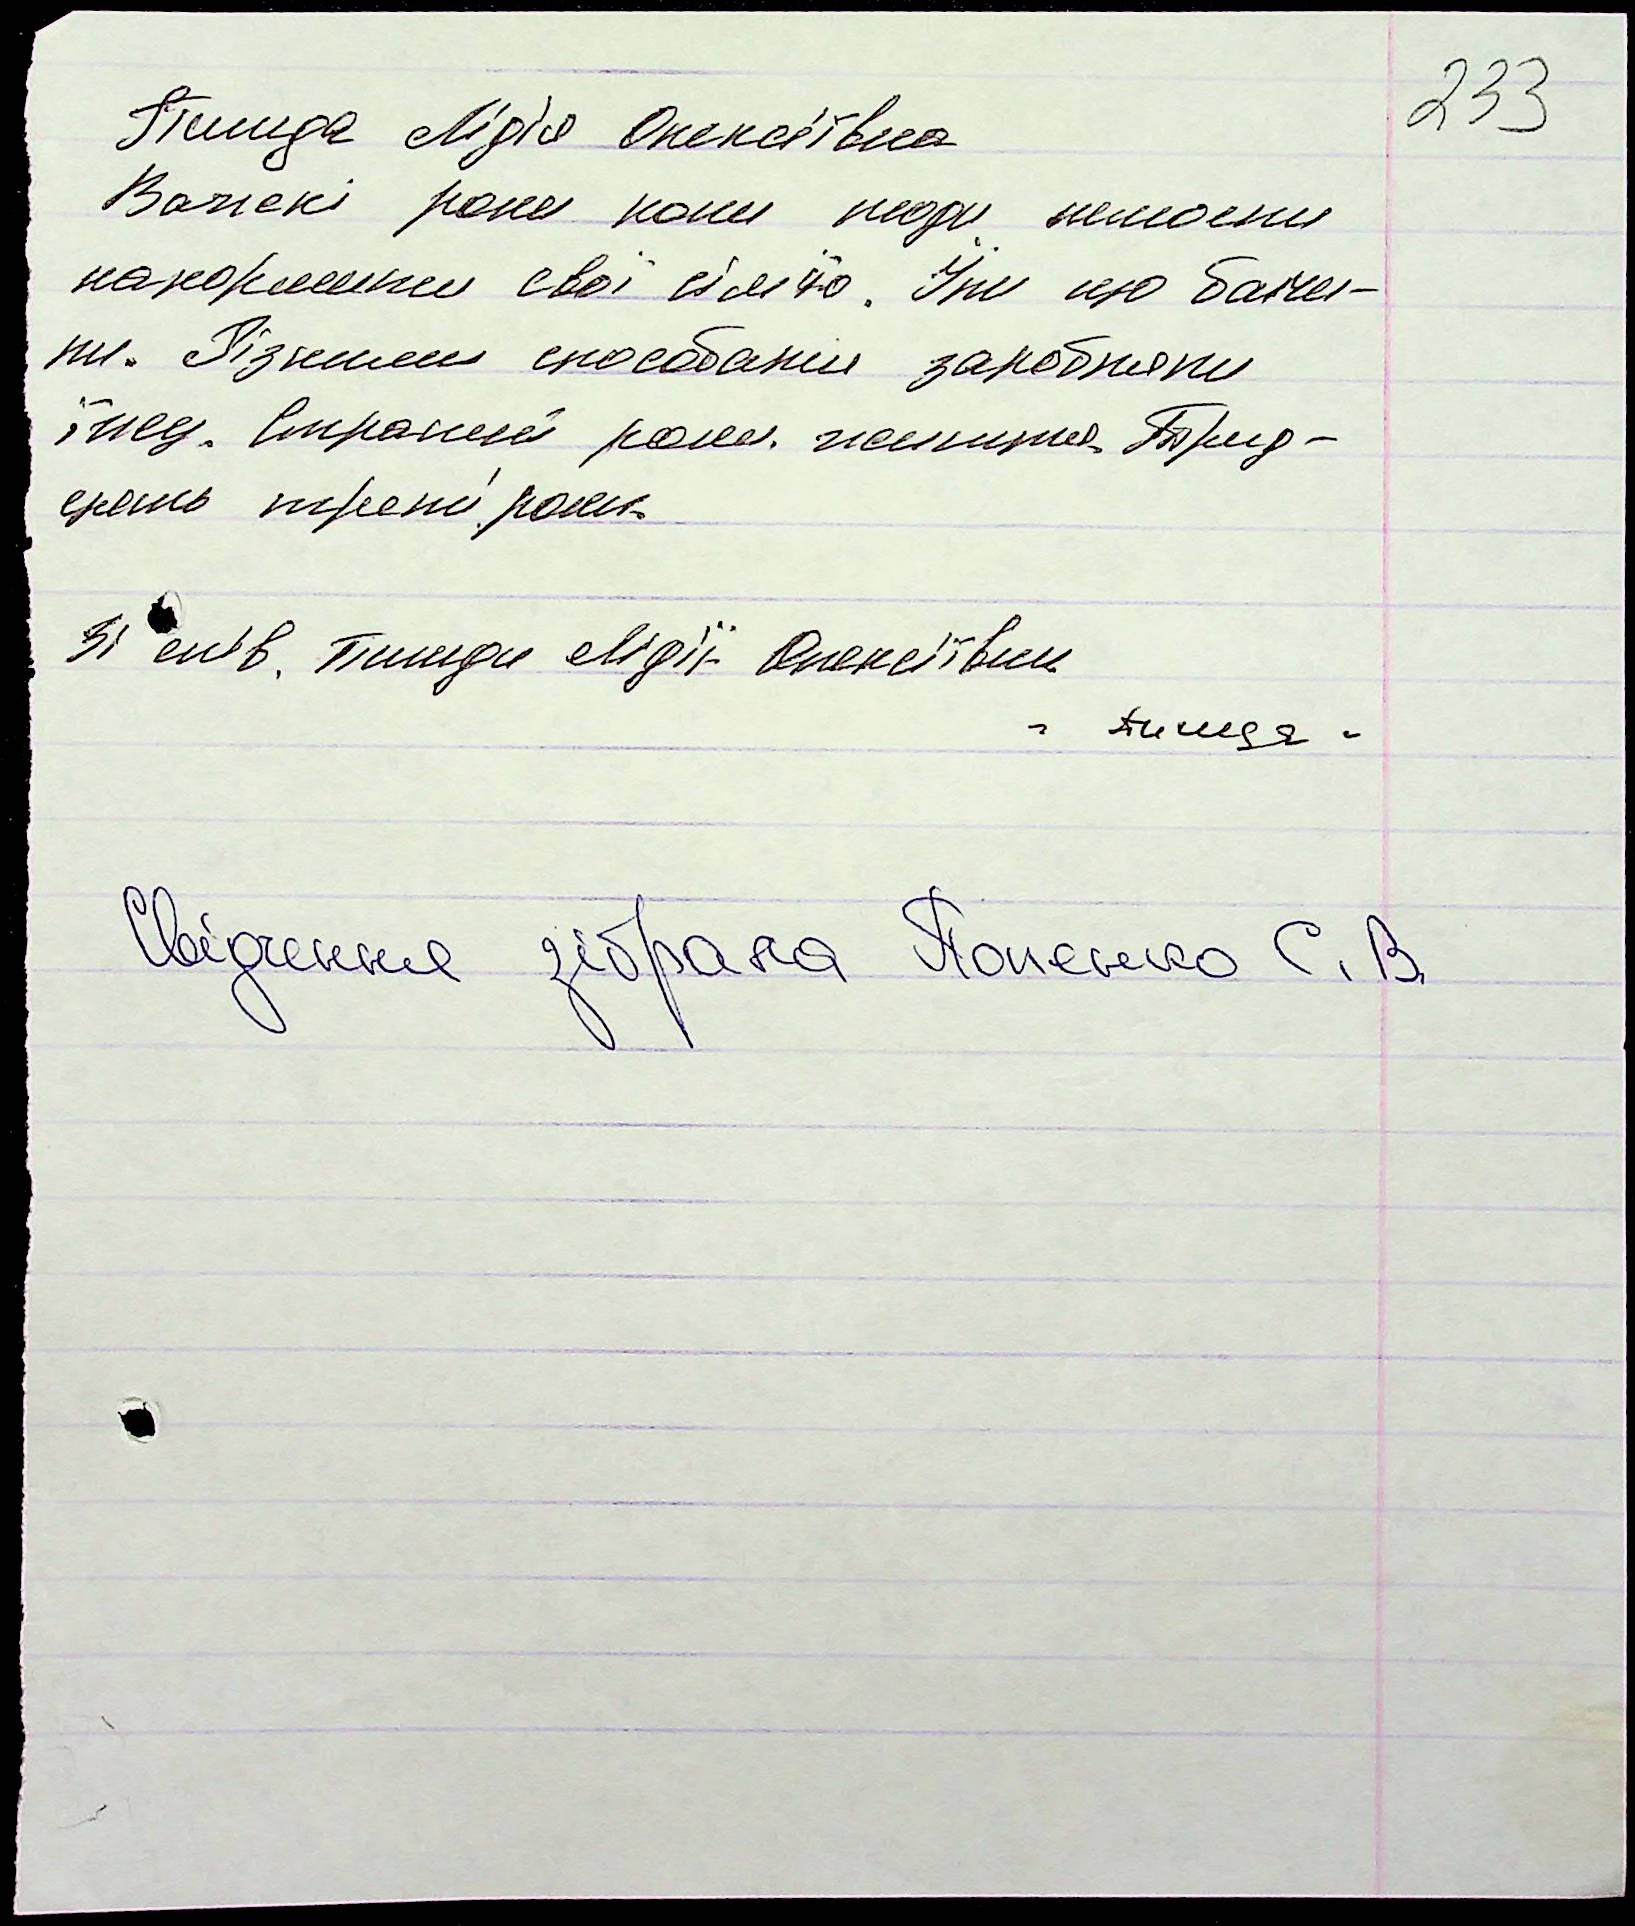 233
Пинда Лідія Олексіївна
Важкі роки коли люди немогли
накормити свої сімїю. Їли що бачи-
ли. Різними способами заробляли
їжу. Страшні роки. Трид-
цять треті роки.
Зі слів. Пинди Лідії Олексіївни
- Пинда -
Свідчення зібрала Попенко С. В.